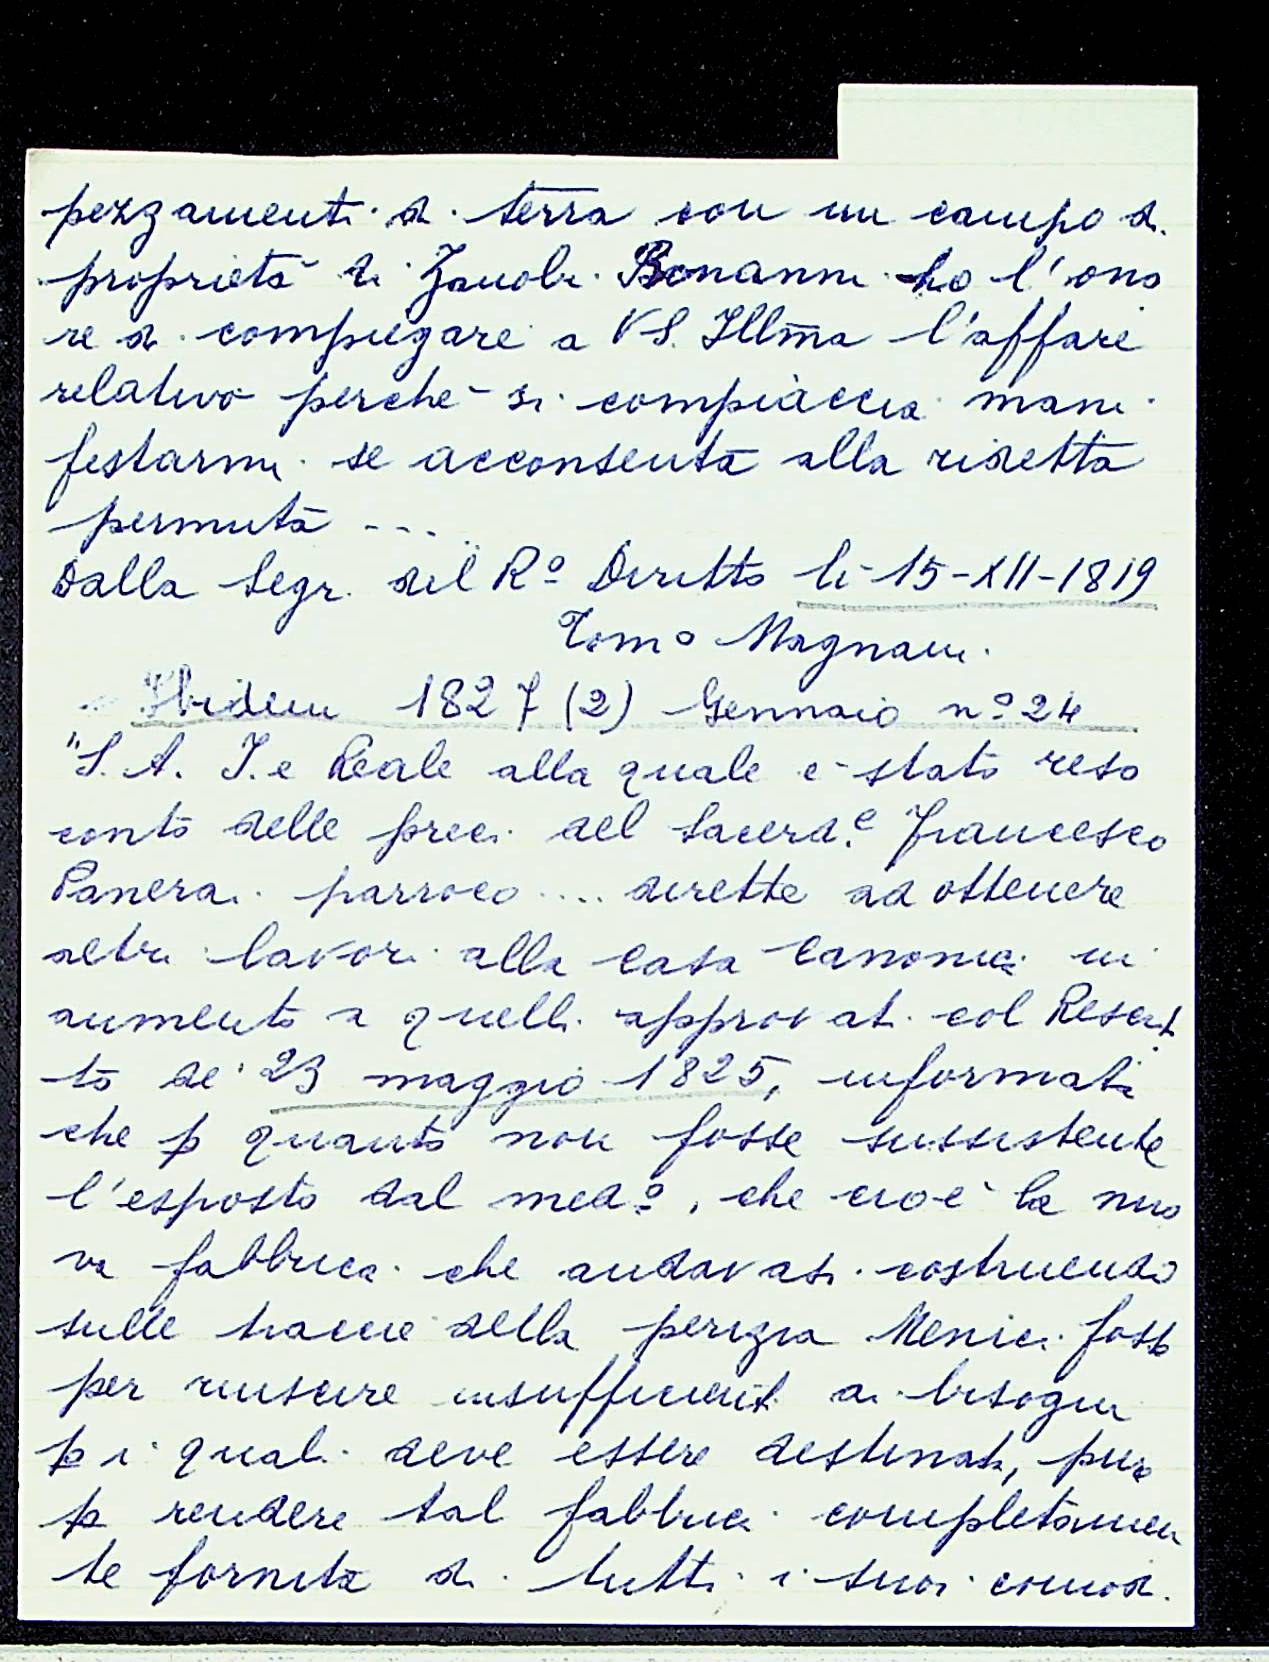 pezzamenti di terra con un campo di
proprietà di Zanobi Bonanni ho l'ono
re di compiegare a VS. Illma l'affare
relativo perchè si compiaccia mani
festarmi se acconsenta alla ridetta
permuta ---
Dalla Segr. del Rº Diritto li-15-XII-1819
Tomº Magnani.
Ibidem 1827 (2) Gennaio nº 24
"S. A. I. e Reale alla quale è stato reso
conto delle preci del Sacerd.e Francesco
Panerai parroco .... dirette ad ottenere
altri lavori alla casa canonica in
aumento a quelli approvati col Rescrit
to de' 23 maggio 1825, informati
che p quanto non fosse sussistente
l'esposto dal medº, che cioè la nuo
va fabbrica che andavasi costruendo
sulle traccie della perizia Menici foss
per riuscire insufficient ai bisogni
p i quali deve essere destinata, pure
p rendere tal fabbrica completamen
te fornita di tutti i suoi comodi.